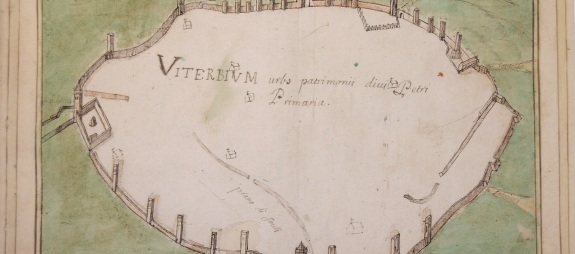 VITERBIVM urbs patrimonii divi Petri
Primaria.